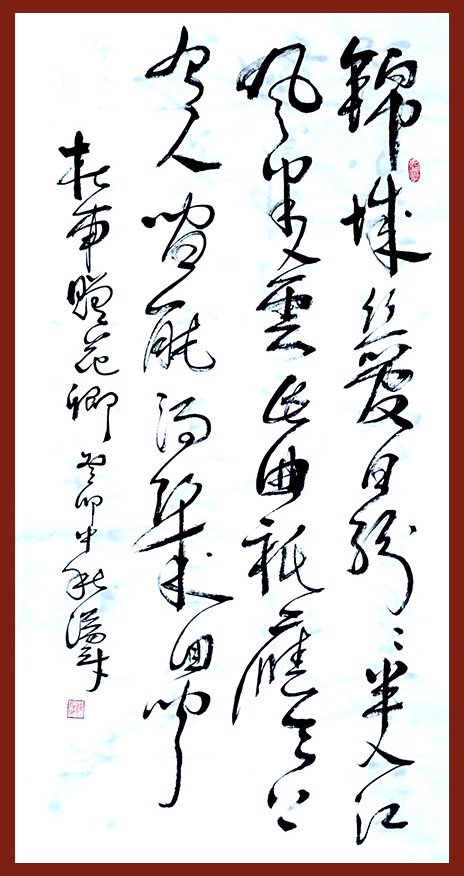 錦城絲管日紛〻半入江
風半入雲此曲祇應天上
有人間能得幾回聞
杜甫贈花卿癸卯中秋